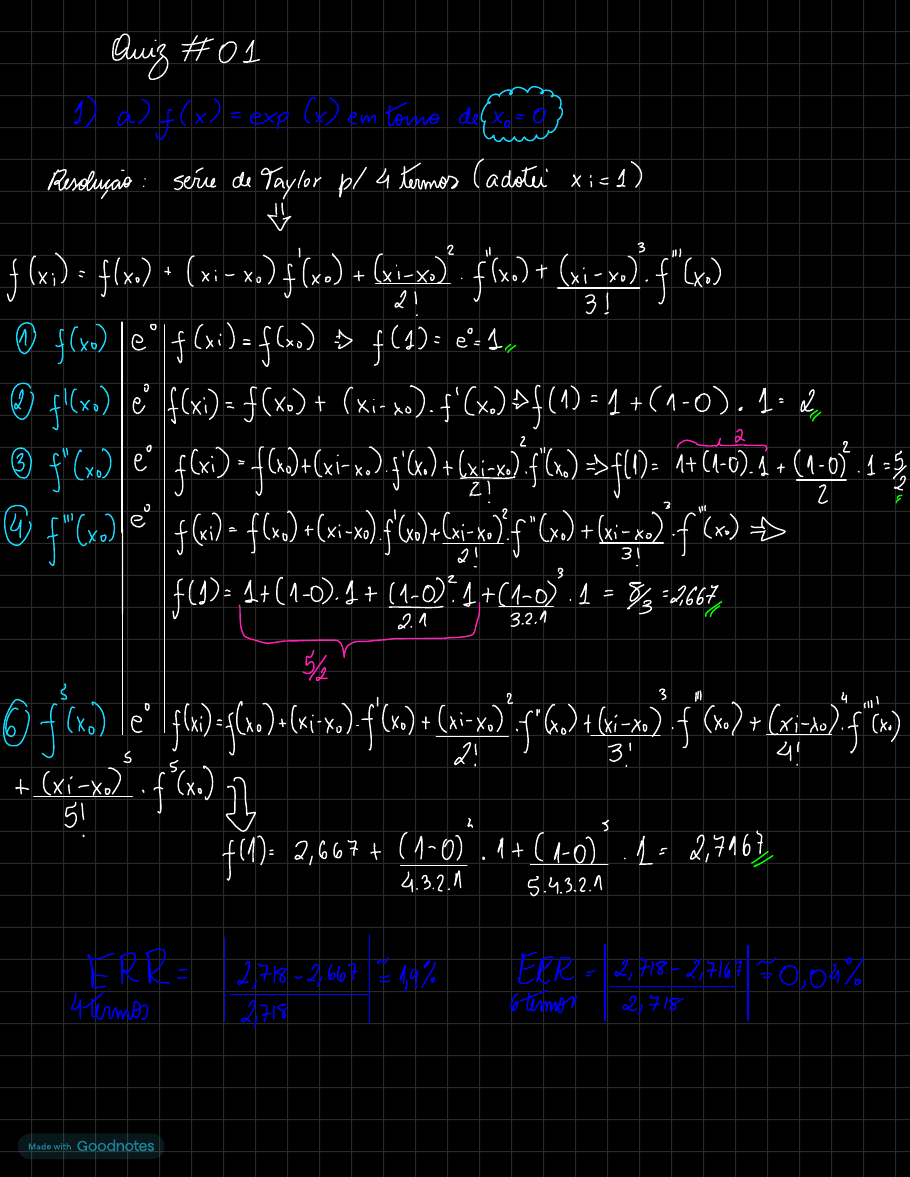 Quiz #01
1) a) f(x) = exp(x) em torno de x₀ = 0
Resolução: série de Taylor p/ 4 termos (adotei xi = 1)
⇓
f(xi) = f(x₀) + (xi - x₀) f'(x₀) + (xi - x₀)²/2! · f''(x₀) + (xi - x₀)³/3! · f'''(x₀)
① f(x₀) | e⁰ | f(xi) = f(x₀) ⇒ f(1) = e⁰ = 1
② f'(x₀) | e⁰ | f(xi) = f(x₀) + (xi - x₀) · f'(x₀) ⇒ f(1) = 1 + (1-0) · 1 = 2
2
③ f''(x₀) | e⁰ | f(xi) = f(x₀) + (xi - x₀) · f'(x₀) + (xi - x₀)²/2! · f''(x₀) ⇒ f(1) = 1 + (1-0) · 1 + (1-0)²/2 · 1 = 5/2
④ f'''(x₀) | e⁰ | f(xi) = f(x₀) + (xi - x₀) · f'(x₀) + (xi - x₀)²/2! · f''(x₀) + (xi - x₀)³/3! · f'''(x₀) ⇒
f(1) = 1 + (1-0) · 1 + (1-0)²/2.1 · 1 + (1-0)³/3.2.1 · 1 = 8/3 = 2,667
5/2
⑥ f⁵(x₀) | e⁰ | f(xi) = f(x₀) + (xi - x₀) · f'(x₀) + (xi - x₀)²/2! · f''(x₀) + (xi - x₀)³/3! · f'''(x₀) + (xi - x₀)⁴/4! · f''''(x₀)
+ (xi - x₀)⁵/5! · f⁵(x₀)
f(1) = 2,667 + (1-0)⁴/4.3.2.1 · 1 + (1-0)⁵/5.4.3.2.1 · 1 = 2,7167
ERR 4 termos = |2,718 - 2,667 / 2,718| ≅ 1,9%
ERR 6 termos = |2,718 - 2,7167 / 2,718| ≅
Made with Goodnotes